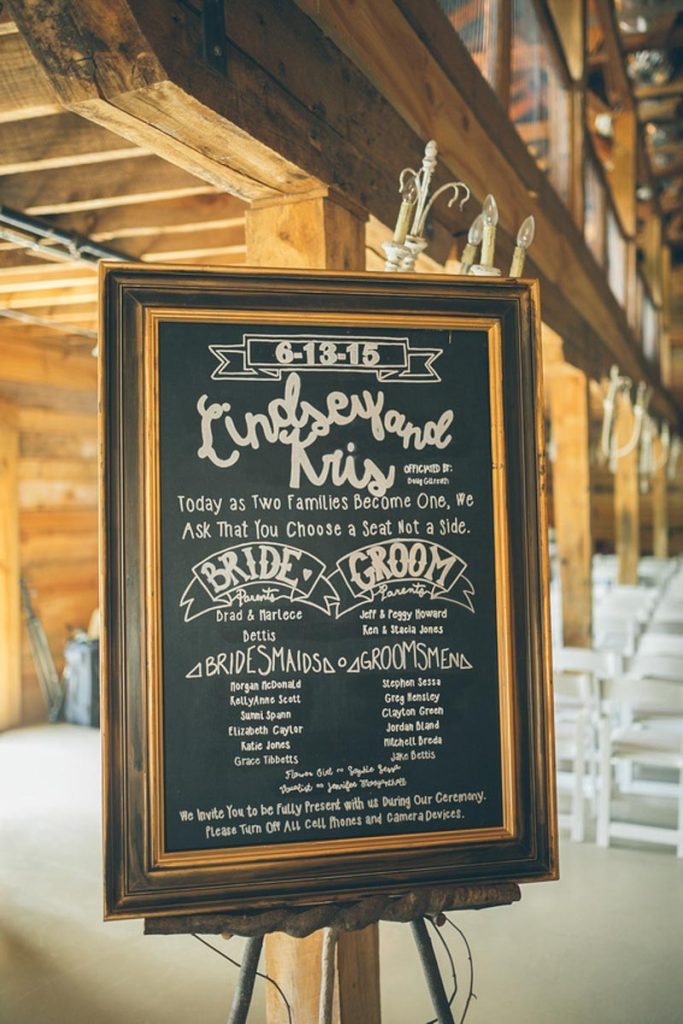 6-13-15
Lindsey and
Kris
OFFICIATED BY:
Doug Gilreath
Today as Two Families Become One, We
Ask That You Choose a Seat Not a Side.
BRIDE GROOM
Parents Parents
Brad & Marlece Jeff & Peggy Howard
Bettis Ken & Stacia Jones
BRIDESMAIDS GROOMSMEN
Morgan McDonald Stephen Sessa
KellyAnne Scott Greg Hensley
Sunni Spann Clayton Green
Elizabeth Caylor Jordan Bland
Katie Jones Mitchell Breda
Grace Tibbetts Jake Bettis
Flower Girl ~ Sessa
Vocalist ~ Jennifer
We Invite You to be Fully Present with us During Our Ceremony.
Please Turn Off All Cell Phones and Camera Devices.